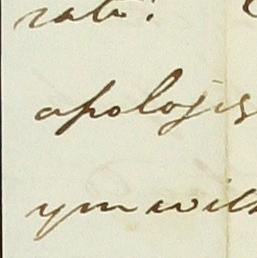 rate.
apologis
ym will